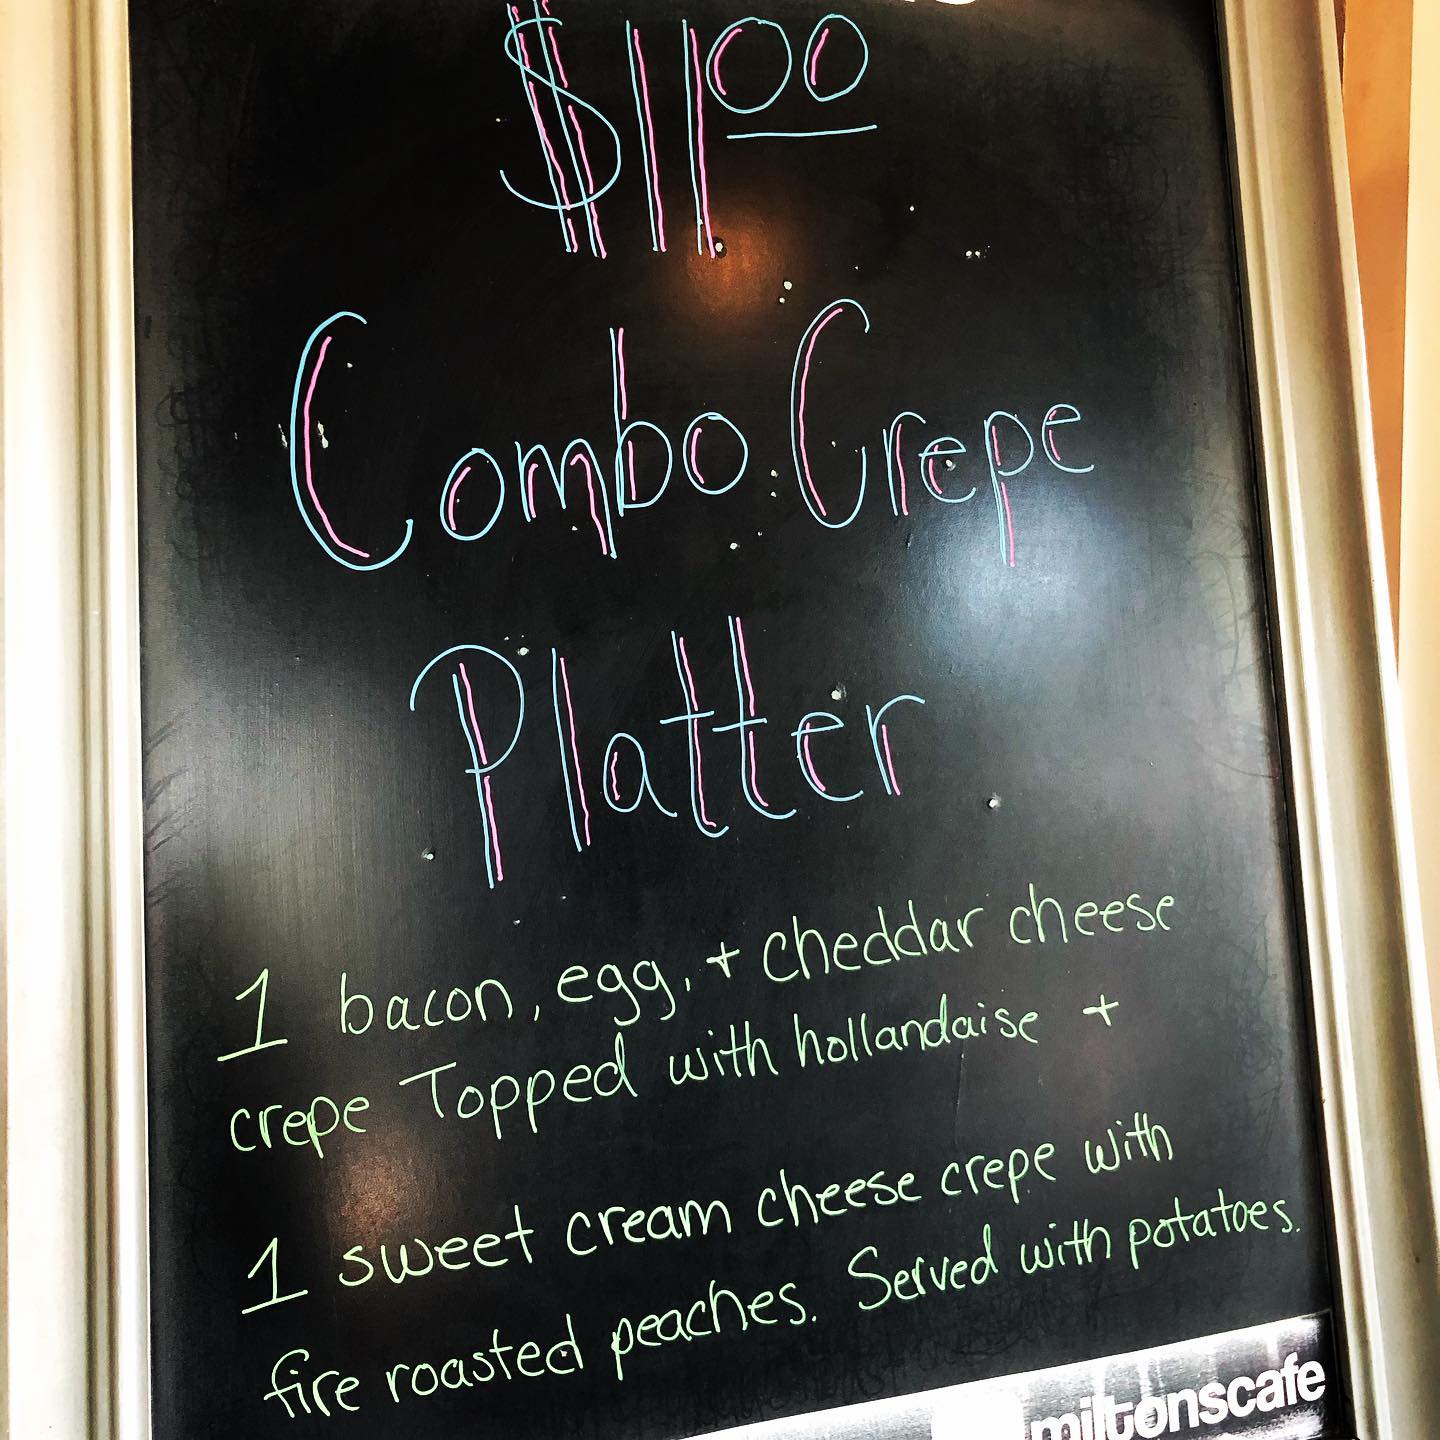 $11.00
Combo Crepe
Platter
1 bacon, egg, + cheddar cheese
crepe Topped with hollandaise +
1 sweet cream cheese crepe with
fire roasted peaches. Served with potatoes.
miltonscafe